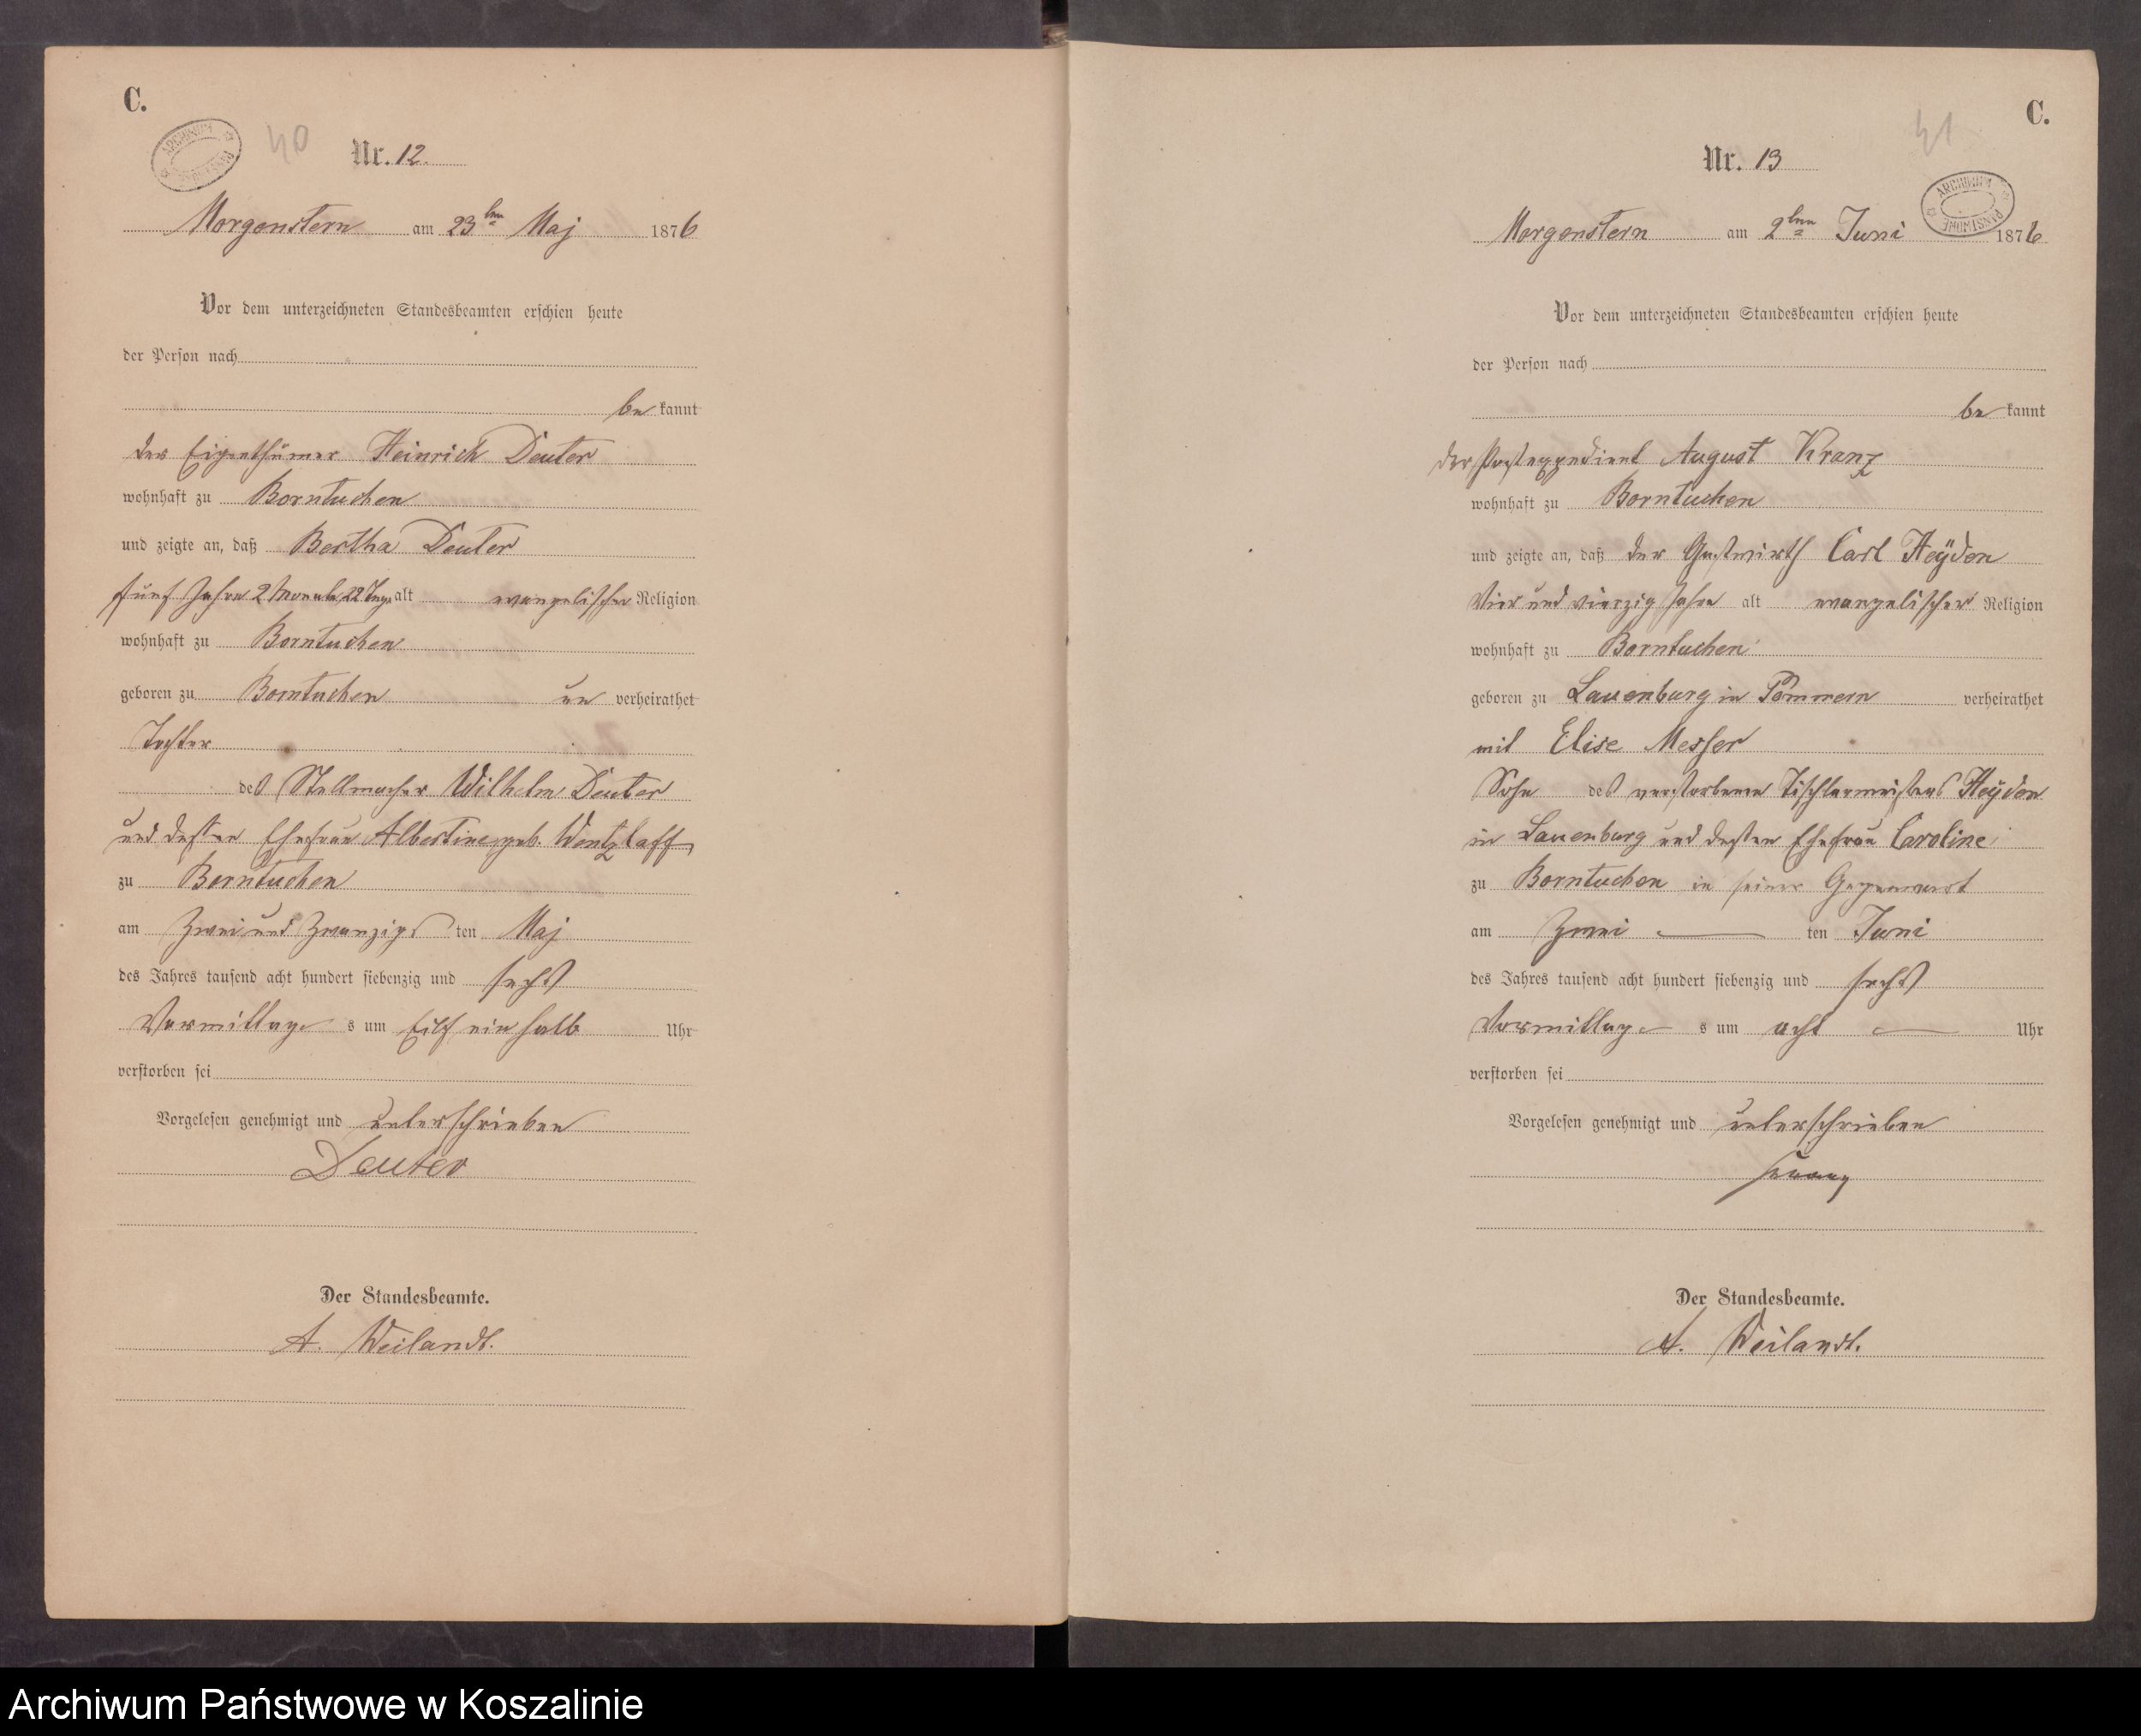 C.
ARCHIWUM PAŃSTWOWE
40
Nr. 12.
Morgenstern am 23ten Maj 1876
Vor dem unterzeichneten Standesbeamten erschien heute
der Person nach
be kannt
der Eigenthümer Heinrich Deuter
wohnhaft zu Borntuchen
und zeigte an, daß Bertha Deuter
fünf Jahre 2 Monate 22 Tage alt evangelischer Religion
wohnhaft zu Borntuchen
geboren zu Borntuchen un verheirathet
Tochter
des Stellmacher Wilhelm Deuter
und dessen Ehefrau Albertine geb. Wentzlaff
zu Borntuchen
am Zwei und Zwanzigs ten Maj
des Jahres tausend acht hundert siebenzig und sechs
Vormittag s um Eilf ein halb Uhr
verstorben sei
Vorgelesen genehmigt und unterschrieben
Deuter
Der Standesbeamte.
A. Weilandt.
C.
41
Nr. 13
ARCHIWUM PAŃSTWOWE
Morgenstern am 2ten Juni 1876
Vor dem unterzeichneten Standesbeamten erschien heute
der Person nach
be kannt
der Postexpedient August Kranz
wohnhaft zu Borntuchen
und zeigte an, daß der Gastwirth Carl Heÿden
Vier und vierzig Jahre alt evangelischer Religion
wohnhaft zu Borntuchen
geboren zu Lauenburg in Pommern verheirathet
mit Elise Messer
Sohn des verstorbenen Tischlermeisters Heÿden
in Lauenburg und dessen Ehefrau Caroline
zu Borntuchen in seiner Gegenwart
am Zwei ten Juni
des Jahres tausend acht hundert siebenzig und sechs
Vormittag s um acht Uhr
verstorben sei
Vorgelesen genehmigt und unterschrieben
Der Standesbeamte.
A. Weilandt.
Archiwum Państwowe w Koszalinie